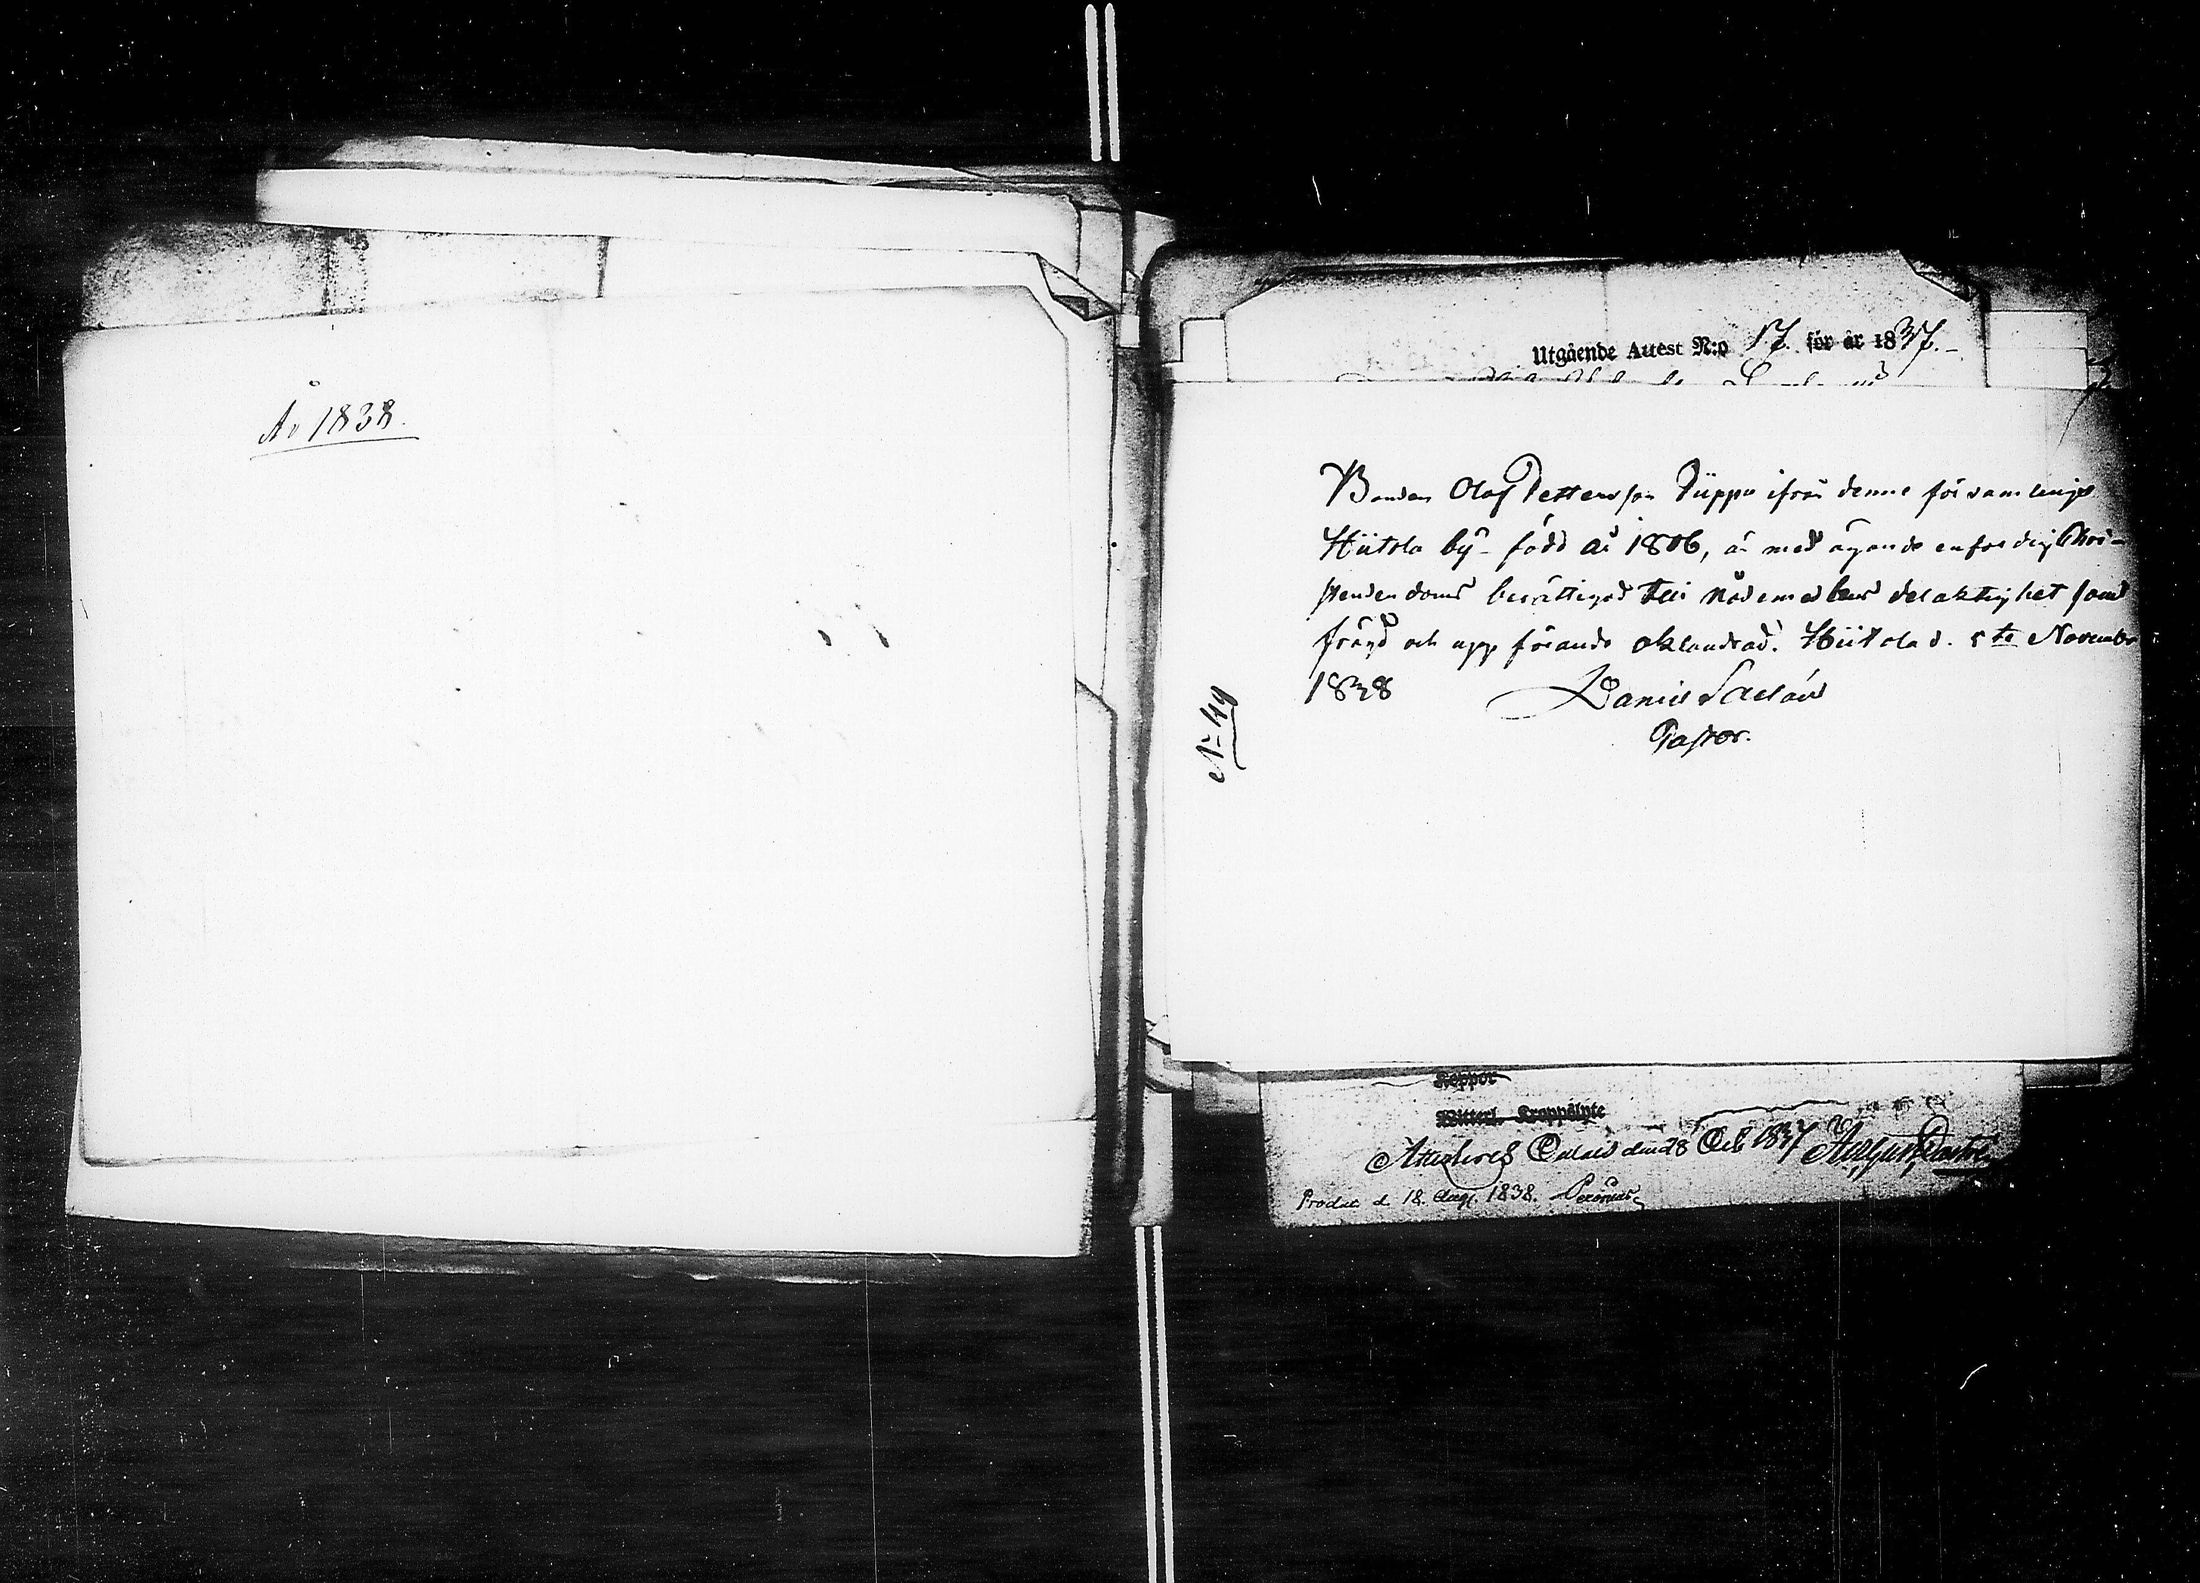 År 1838.
Utgående Attest N:o 17. för år 1837.
Bonden Olof Pettersson Püppo ifrån denne församlings
Hiitola by född år 1806, är med ägande enfaldig Chri-
stendoms berättigad till nådemedlens delaktighet samt
frägd och uppförande oklandrad. Hiitola d. 5te November
1838
Daniel
Pastor.
N:o 49
Koppor
Witterl. Kroppslyte
Attesteres den 28 Oct 1837 August
Produc. d. 18. Aug. 1838.